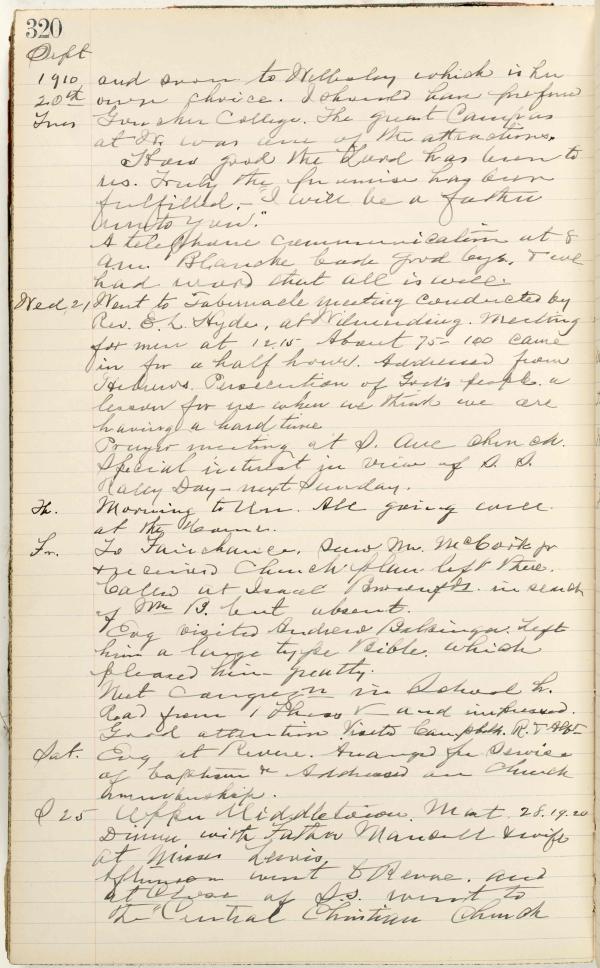 320
Sept
1910 and soon to Wellesley which is her
20th own choice. I should have prefered
Tues Goucher College. The great Campus
at W. was one of the attractions.
How good the Lord has been to
us. Truly the promise has been
fulfilled, "I will be a father
unto you."
A telephone communication at 8
am. Blanche bade good bye. & we
had word that all is well.
Wed. 21 Went to Tabernacle meeting conducted by
Rev. E. L. Hyde, at Meeting
for men at 12.15 About 75-100 came
in for a half hour. Addressed from
Hebrews. Persecution of God's people. a
lesson for us when we think we are
having a hard time.
Prayer meeting at S. Ave Church.
Special interest in view of S. S.
Rally Day - next Sunday.
Th. Morning to Un. All going well
at the
Fr. To Fairchance. Saw Mr. McCork jr
& received Church plan left there.
Called at Isaac in search
of Mr B. but absent.
Evg visited Andrew Left
him a large type Bible. which
pleased him greatly.
Met Congregn in School h.
Read from 1 Thess V - and impressed.
Good attention Visited Campbell. R. T.
Sat. Evg at Revere. Arranged for service
of baptism & Addressed on Church
membership.
S 25 Upper Middletown. Mat. 28.19.20
Dinner with Father Mansell & wife
at Misses Lewis.
Afternoon went to Revere. and
at close of S.s. went to
the "Central Christian Church